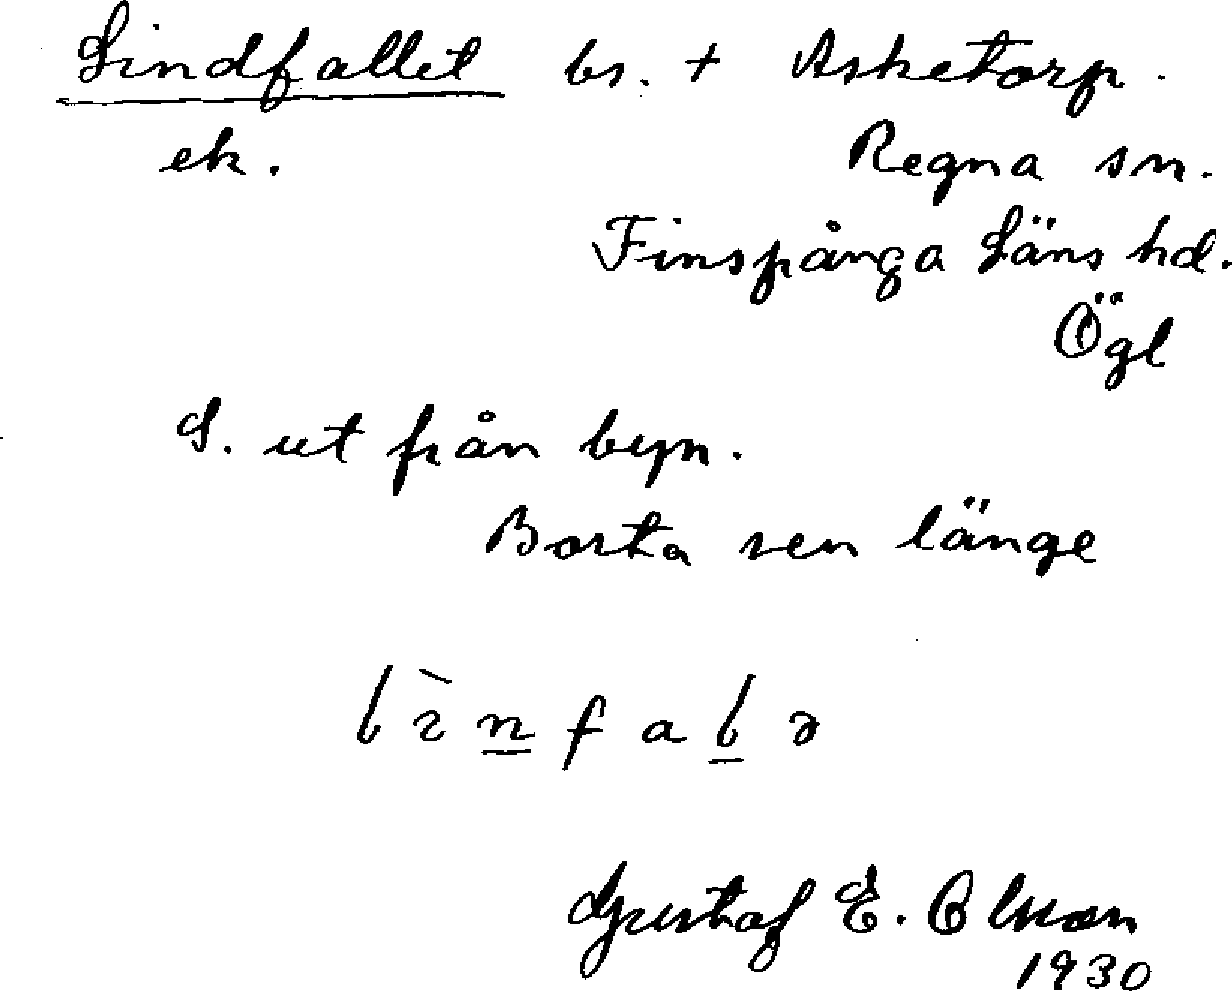 Lindfallet bs. + Asketorp.
ek. Regna sn.
Finspånga Läns hd.
Ögl
S. ut från byn.
Borta sen länge
Gustaf E. Olsson
1930